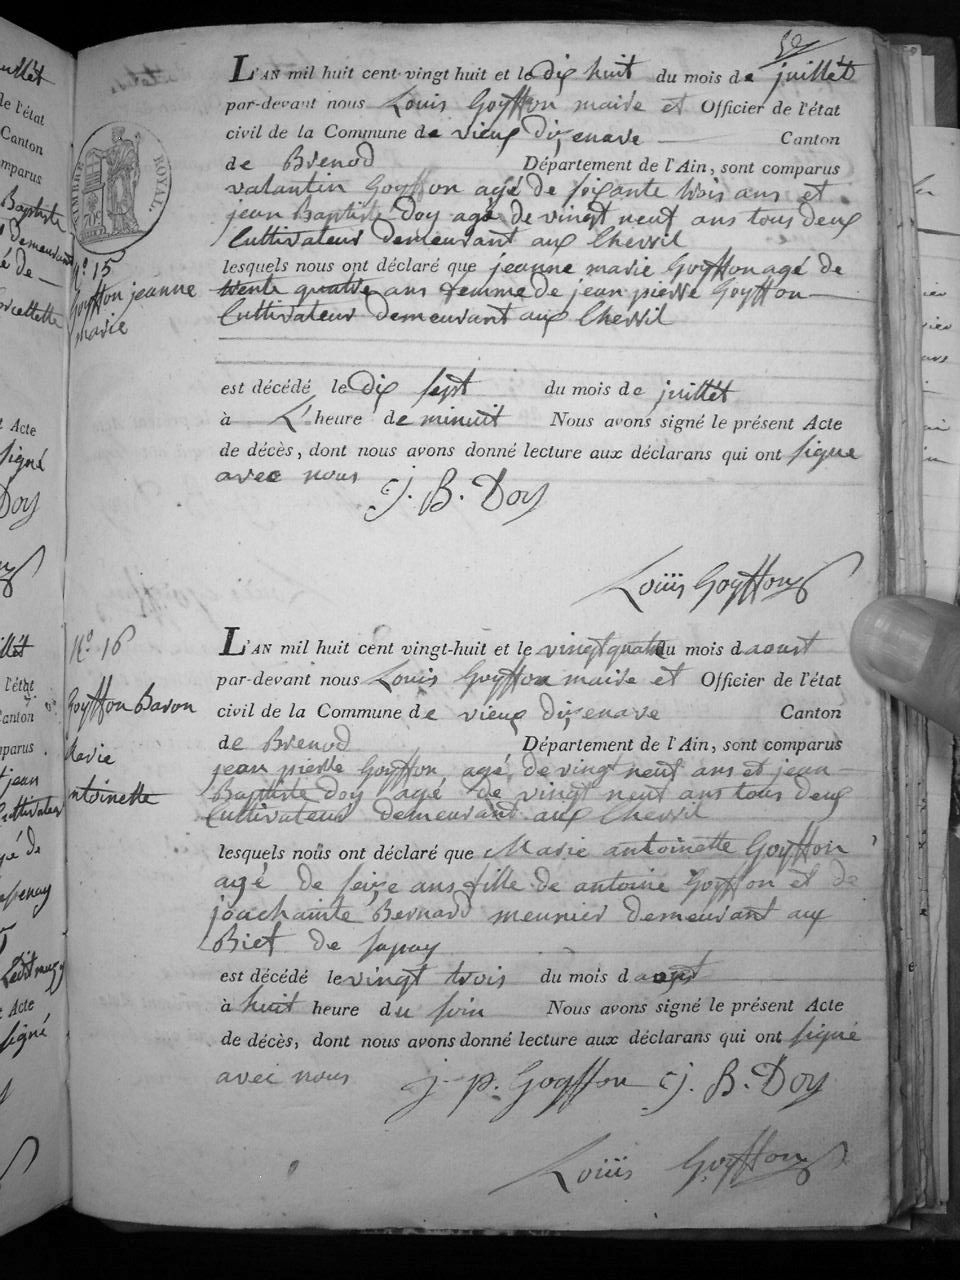 L'AN mil huit cent vingt huit et le dix huit du mois de juillet
par-devant nous Louis Goyffon maire et Officier de l'état
civil de la Commune de vieux dizenave Canton
de Brenod Département de l'Ain, sont comparus
valantin Goyffon agé de soixante trois ans et
jean Baptiste Doy agé de vingt neuf ans tous deux
Cultivateur demeurant aux Cherril
TIMBRE ROYAL.
N.º 15
Goyffon jeanne
marie
lesquels nous ont déclaré que jeanne marie Goyffon agé de
trente quatre ans femme de jean pierre Goyffon
Cultivateur demeurant aux Cherril
est décédé le dix sept du mois de juillet
à L' heure de minuit Nous avons signé le présent Acte
de décès, dont nous avons donné lecture aux déclarans qui ont signe
avec nous
J. B. Doy
Louis Goyffon
N.º 16
Goyffon Baron
Marie
antoinette
L'AN mil huit cent vingt-huit et le vingt quatre du mois d aoust
par-devant nous Louis Goyffon maire et Officier de l'état
civil de la Commune de vieux dizenave Canton
de Brenod Département de l'Ain, sont comparus
jean pierre Goyffon agé de vingt neuf ans et jean
Baptiste Doy agé de vingt neuf ans tous deux
Cultivateur demeurant aux Cherril
lesquels nous ont déclaré que Marie antoinette Goyffon
agé de seize ans fille de antoine Goyffon et de
joachainte Bernard meunier demeurant aux
Biet de
est décédé le vingt trois du mois d aoust
à huit heure du soir Nous avons signé le présent Acte
de décès, dont nous avons donné lecture aux déclarans qui ont signé
avec nous
j. p. Goyffon J. B. Doy
Louis Goyffon